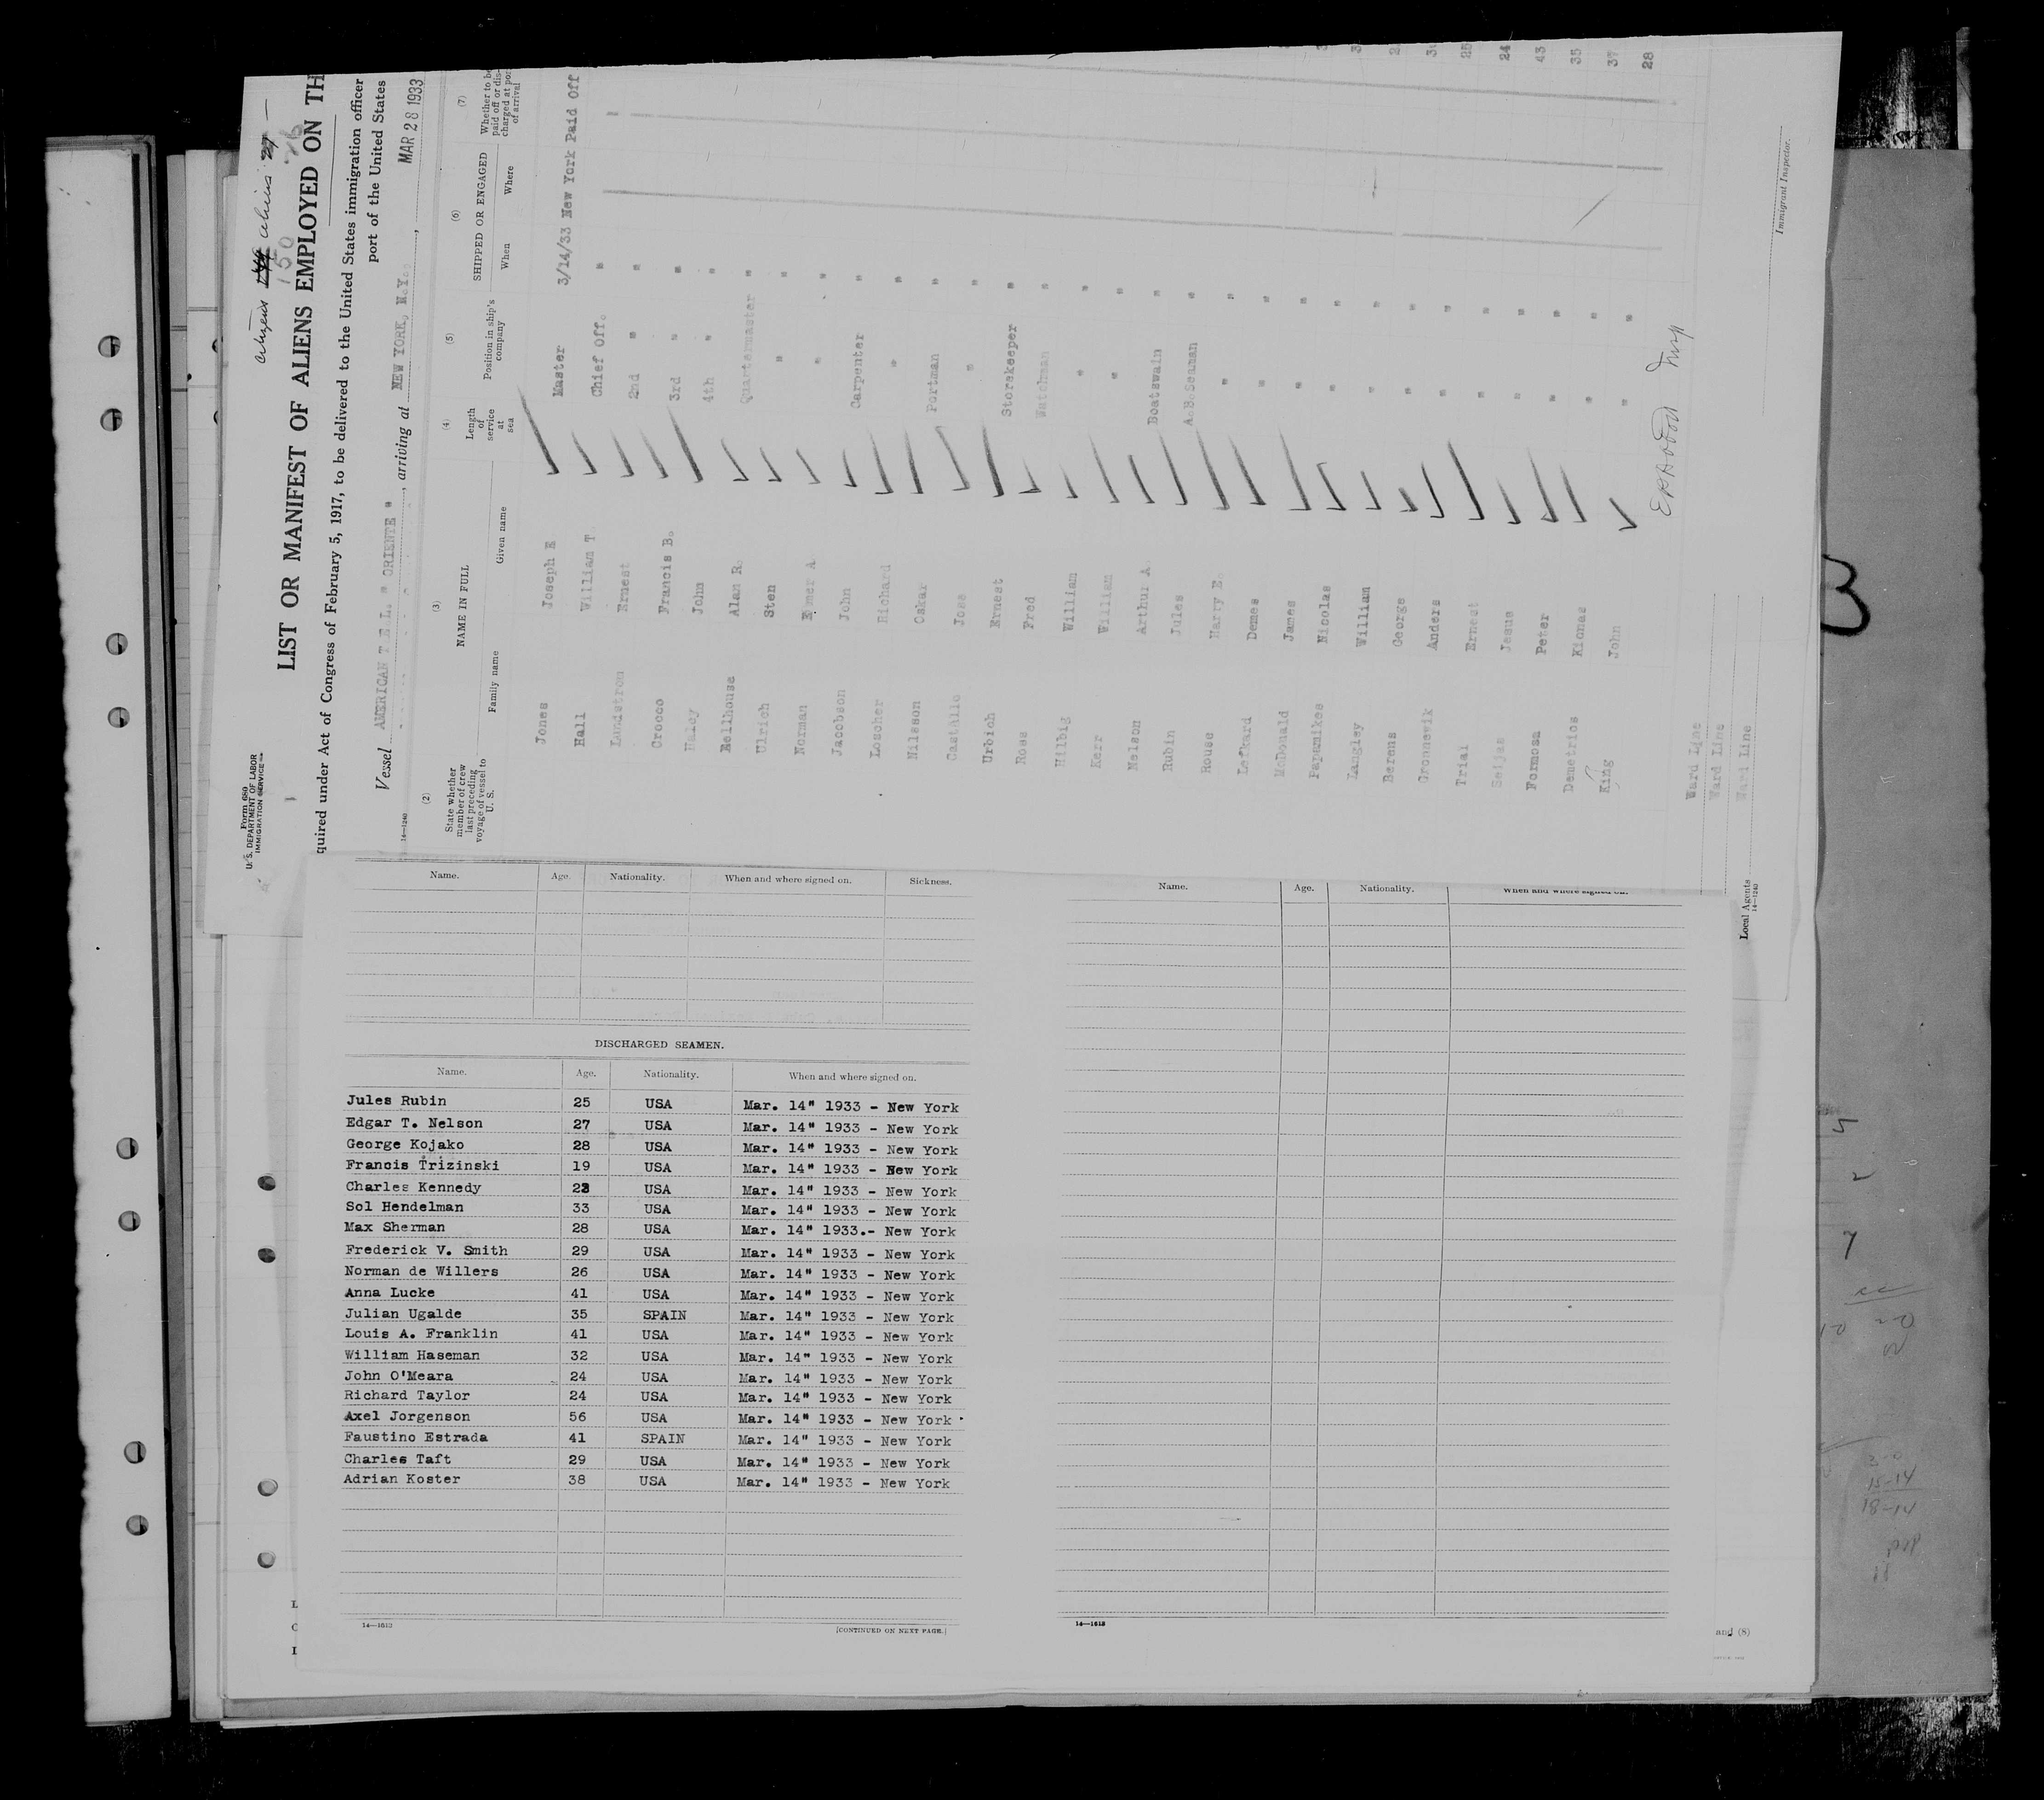 Form 680
U. S. DEPARTMENT OF LABOR
IMMIGRATION SERVICE
citizens aliens 27
150
LIST OR MANIFEST OF ALIENS EMPLOYED ON TH
quired under Act of Congress of February 5, 1917, to be delivered to the United States immigration officer
port of the United States
Vessel AMERICAN T E L. " ORIENTE ", arriving at NEW YORK, N.Y., MAR 28 1933
14—1240
(2) (3) (4) (5) (6) (7)
State whether member of crew last preceding voyage of vessel to U. S.
NAME IN FULL
Family name Given name
Length of service at sea
Position in ship's company
SHIPPED OR ENGAGED
When Where
Whether to be paid off or dis- charged at por of arrival
Jones Joseph E Master 3/14/33 New York Paid Off
Hall William T. Chief Off. "
Lundstrom Ernest 2nd " "
Crocco Francis B. 3rd " "
Haley John 4th " "
Bellhouse Alan R. Quartermaster "
Ulrich Sten " "
Norman A. " "
Jacobson John Carpenter "
Loscher Richard " "
Nilsson Oskar Portman "
Castillo Jose " "
Urbich Ernest Storekeeper "
Ross Fred Watchman "
Hilbig William " "
Kerr William " "
Nelson Arthur A. Boatswain "
Rubin Jules A.B.Seaman "
Rouse Harry E. " "
Lefkard Demes " "
McDonald James " "
Papamikes Nicolas " "
Langley William " "
Berens George " "
Gronnewik Anders " "
Trial Ernest " " 25
Seijas Jesus " " 24
Formosa Peter " " 43
Demetrios Kionas " " 35
King John " " 37
28
Ward Line
Ward Line
Ward Line
Local Agents
14—1240
Immigrant Inspector.
Name. Age. Nationality. When and where signed on. Sickness.
DISCHARGED SEAMEN.
Name. Age. Nationality. When and where signed on.
Jules Rubin 25 USA Mar. 14" 1933 - New York
Edgar T. Nelson 27 USA Mar. 14" 1933 - New York
George Kojako 28 USA Mar. 14" 1933 - New York
Francis Trizinski 19 USA Mar. 14" 1933 - New York
Charles Kennedy 23 USA Mar. 14" 1933 - New York
Sol Hendelman 33 USA Mar. 14" 1933 - New York
Max Sherman 28 USA Mar. 14" 1933.- New York
Frederick V. Smith 29 USA Mar. 14" 1933 - New York
Norman de Willers 26 USA Mar. 14" 1933 - New York
Anna Lucke 41 USA Mar. 14" 1933 - New York
Julian Ugalde 35 SPAIN Mar. 14" 1933 - New York
Louis A. Franklin 41 USA Mar. 14" 1933 - New York
William Haseman 32 USA Mar. 14" 1933 - New York
John O'Meara 24 USA Mar. 14" 1933 - New York
Richard Taylor 24 USA Mar. 14" 1933 - New York
Axel Jorgenson 56 USA Mar. 14" 1933 - New York
Faustino Estrada 41 SPAIN Mar. 14" 1933 - New York
Charles Taft 29 USA Mar. 14" 1933 - New York
Adrian Koster 38 USA Mar. 14" 1933 - New York
14—1613
[CONTINUED ON NEXT PAGE.]
Name. Age. Nationality. When and where signed on.
14—1613
and (8)
3-0
15-14
18-14